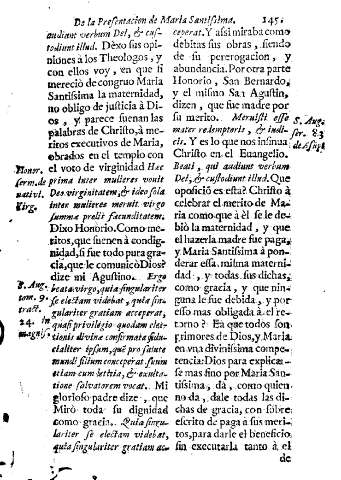 De la Presentacion de Maria Santissima. 245.
audiunt verbum Dei, & cus-
todiunt illud. Dexo sus opi-
niones à los Theologos, y
con ellos voy, en que si
mereciò de congruo Maria
Santissima la maternidad,
no obligo de justicia à Di-
os, y parece suenan las
palabras de Christo, à me-
ritos executivos de Maria,
obrados en el templo con
el voto de virginidad Hæc
prima inter mulieres vovit
Dei virginitatem, & ideo sola
inter mulieres meruit virgo
summæ prolis fæcunditatem;
Dixo Honorio. Como me-
ritos, que suenen à condig-
nidad, si fue todo pura gra-
cia, que le comunicò Dios?
dize mi Agustino. Ergo
beata virgo, quia singulariter
se electam videbat, quia sin-
gulariter gratiam acceperat,
quasi privilegio quodam elec-
tionis divinæ confirmata fidu-
cialiter ipsum, quē pro salute
mundi filium conceperat suum
etiam cum letitia, & exulta-
tione salvatorem vocat. Mi
glorioso padre dize, que
Mirò toda su dignidad
como gracia. Quia singu-
lariter se electam videbat,
quia singulariter gratiam ac-
Honor.
serm. de
nativi.
Virg.
S. Aug.
tom. 9.
tract.
24. in
magnif.
ceperat. Y assi miraba como
debitas sus obras, siendo
de su prerogacion, y
abundancia. Por otra parte
Honorio, San Bernardo,
y el mismo San Agustin,
dizen, que fue madre por
su merito. Meruisti esse
mater redemptoris, & indi-
cis. Y es lo que nos insinua
Christo en el Euangelio.
Beati, qui audiunt verbum
Dei, & custodiunt illud. Que
oposiciõ es esta? Christo à
celebrar el merito de Ma-
ria como que à èl se le de-
biò la maternidad, y que
el hazerla madre fue paga,
y Maria Santissima à pon-
derar essa misma materni-
dad, y todas sus dichas,
como gracia, y que nin-
guna le fue debida, y por
esso mas obligada à el re-
torno? Ea que todos son
primores de Dios, y Maria
en vna divinissima compe-
tencia: Dios para explicar-
se mas fino por Maria San-
tissima, dà, como quien
no da, dale todas las di-
chas de gracia, con sobre
escrito de paga à sus meri-
tos, para darle el beneficio
sin executarla tanto à el
de
S. Aug.
ser. 83
de Assūpt